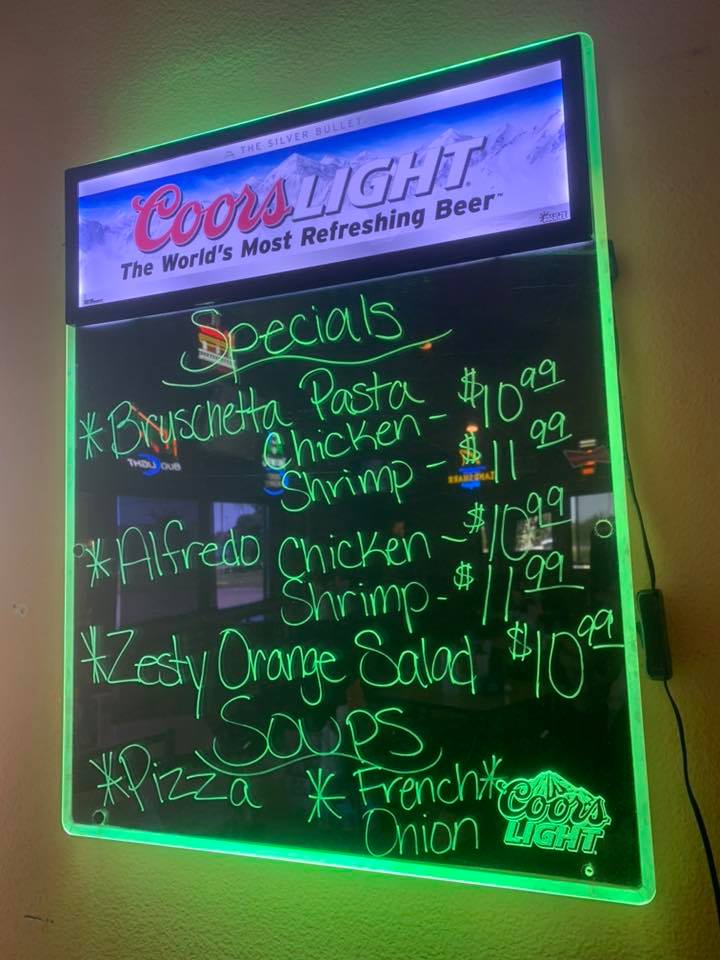 THE SILVER BULLET
Coors LIGHT
The World's Most Refreshing Beer™
Specials
*Bruschetta Pasta
Chicken - $10.99
Shrimp - $11.99
*Alfredo Chicken - $10.99
Shrimp - $11.99
*Zesty Orange Salad $10.99
Soups
*Pizza * French *
Onion
Coors
LIGHT